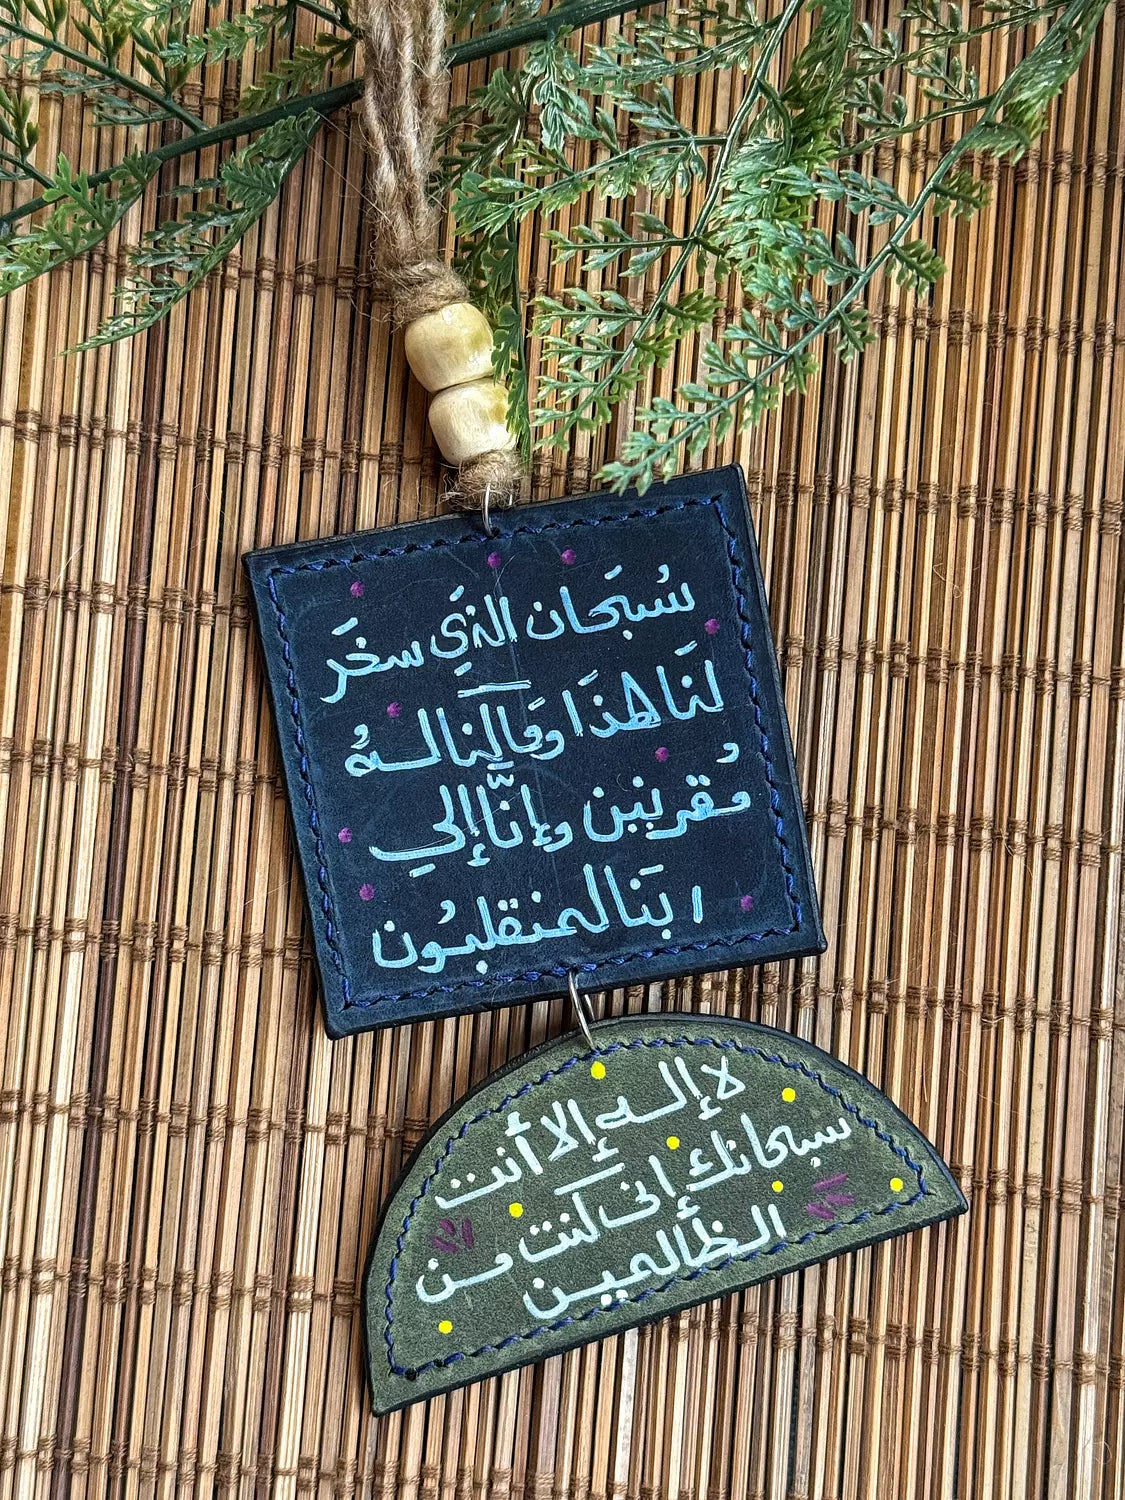 سُبَحَان الذَيِ سخَر
لنَا هذَا وَمَا كنا لهُ
مُقرنين وإنَّا إلي
ربَنا لمنقلبُون
لا إله إلا أنت
سبحانك إني كنت من
الظالمين